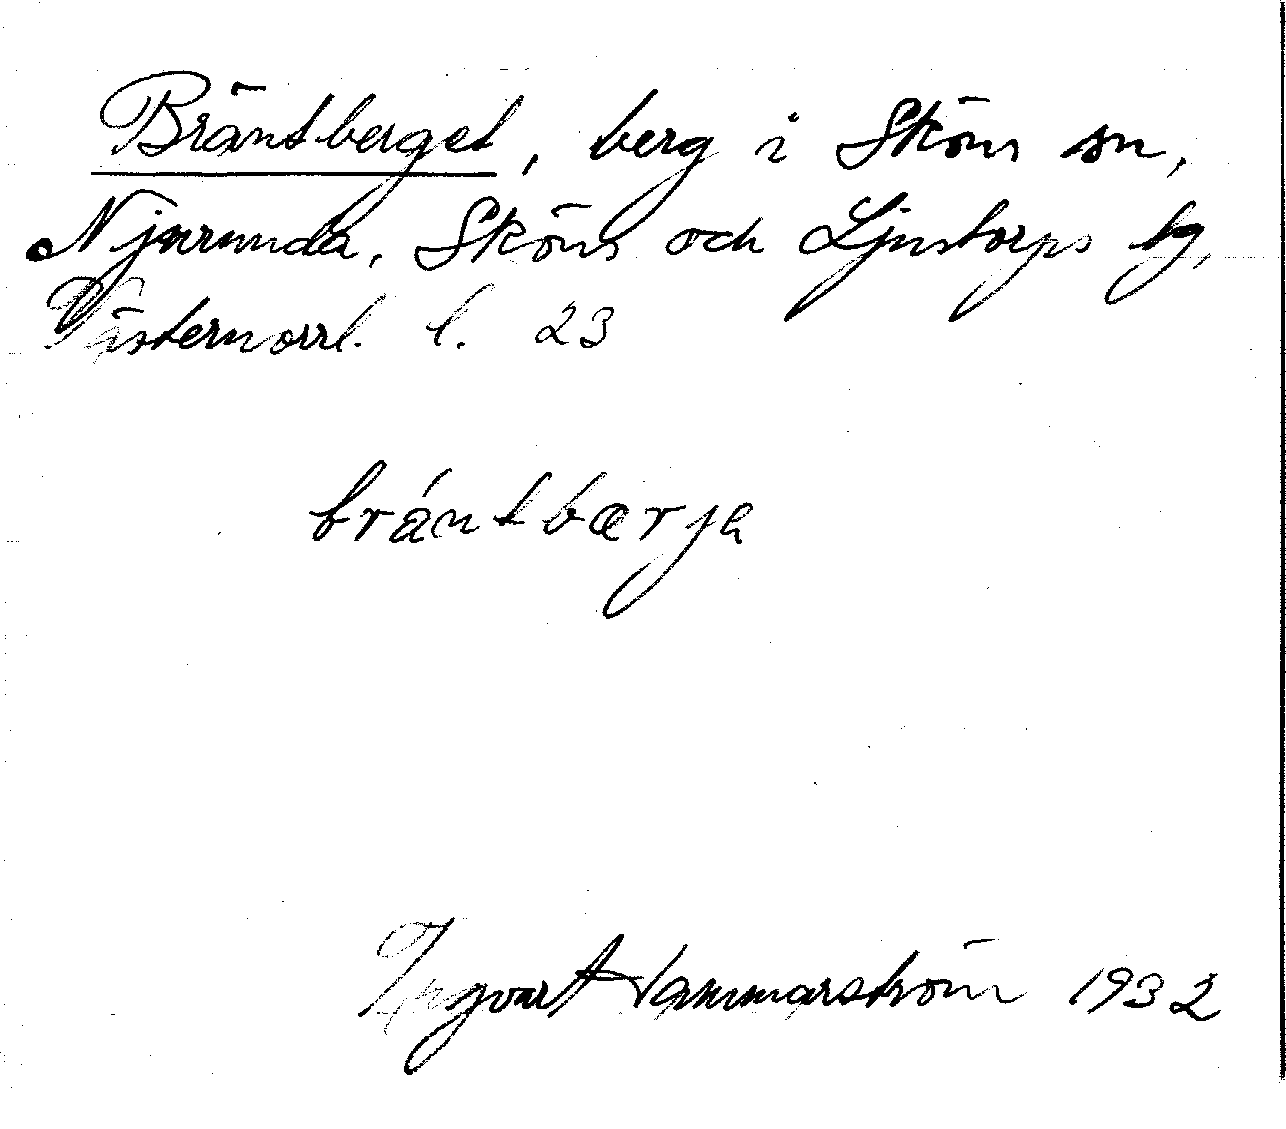 Bräntberget, berg i Sköns sn,
Njurunda, Sköns och Ljustorps tg,
Västernorrl. l. 23
brántbærja
Ingvart Hammarström 1932